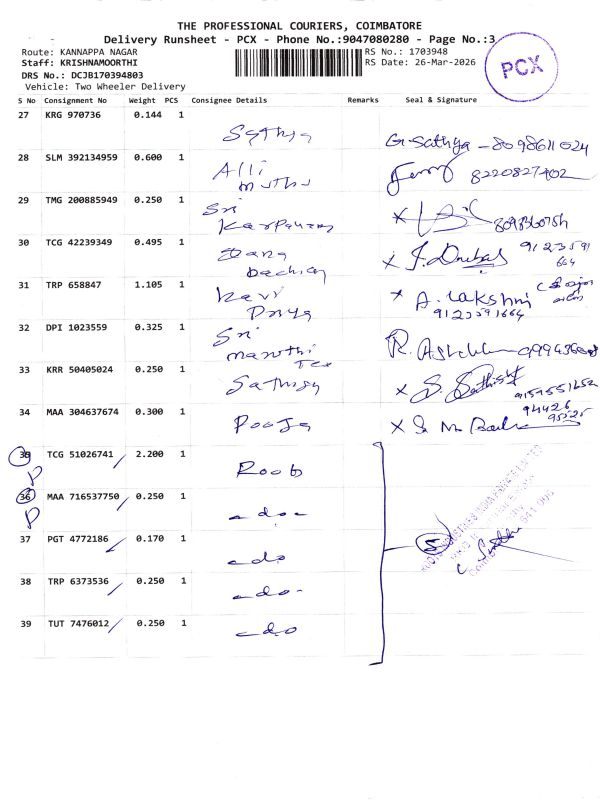 THE PROFESSIONAL COURIERS, COIMBATORE
Delivery Runsheet - PCX - Phone No.:9047080280 - Page No.:3
Route: KANNAPPA NAGAR RS No.: 1703948
Staff: KRISHNAMOORTHI RS Date: 26-Mar-2026
DRS No.: DCJB170394803
Vehicle: Two Wheeler Delivery
PCX
S No Consignment No Weight PCS Consignee Details Remarks Seal & Signature
27 KRG 970736 0.144 1 Sathya G. Sathya - 8098611024
28 SLM 392134959 0.600 1 Alli muthu 8220827402
29 TMG 200885949 0.250 1 Sri Karpagam
30 TCG 42239349 0.495 1 9123591 664
31 TRP 658847 1.105 1 Kavi Priya A. Lakshmi 9123591664
32 DPI 1023559 0.325 1 Sri maruthi Tex R.
33 KRR 50405024 0.250 1 Sathish S. Sathish
34 MAA 304637674 0.300 1 Pooja 94426 95525
35 TCG 51026741 2.200 1 Roob
36 MAA 716537750 0.250 1 -do-
37 PGT 4772186 0.170 1 -do
38 TRP 6373536 0.250 1 -do-
39 TUT 7476012 0.250 1 -do
5